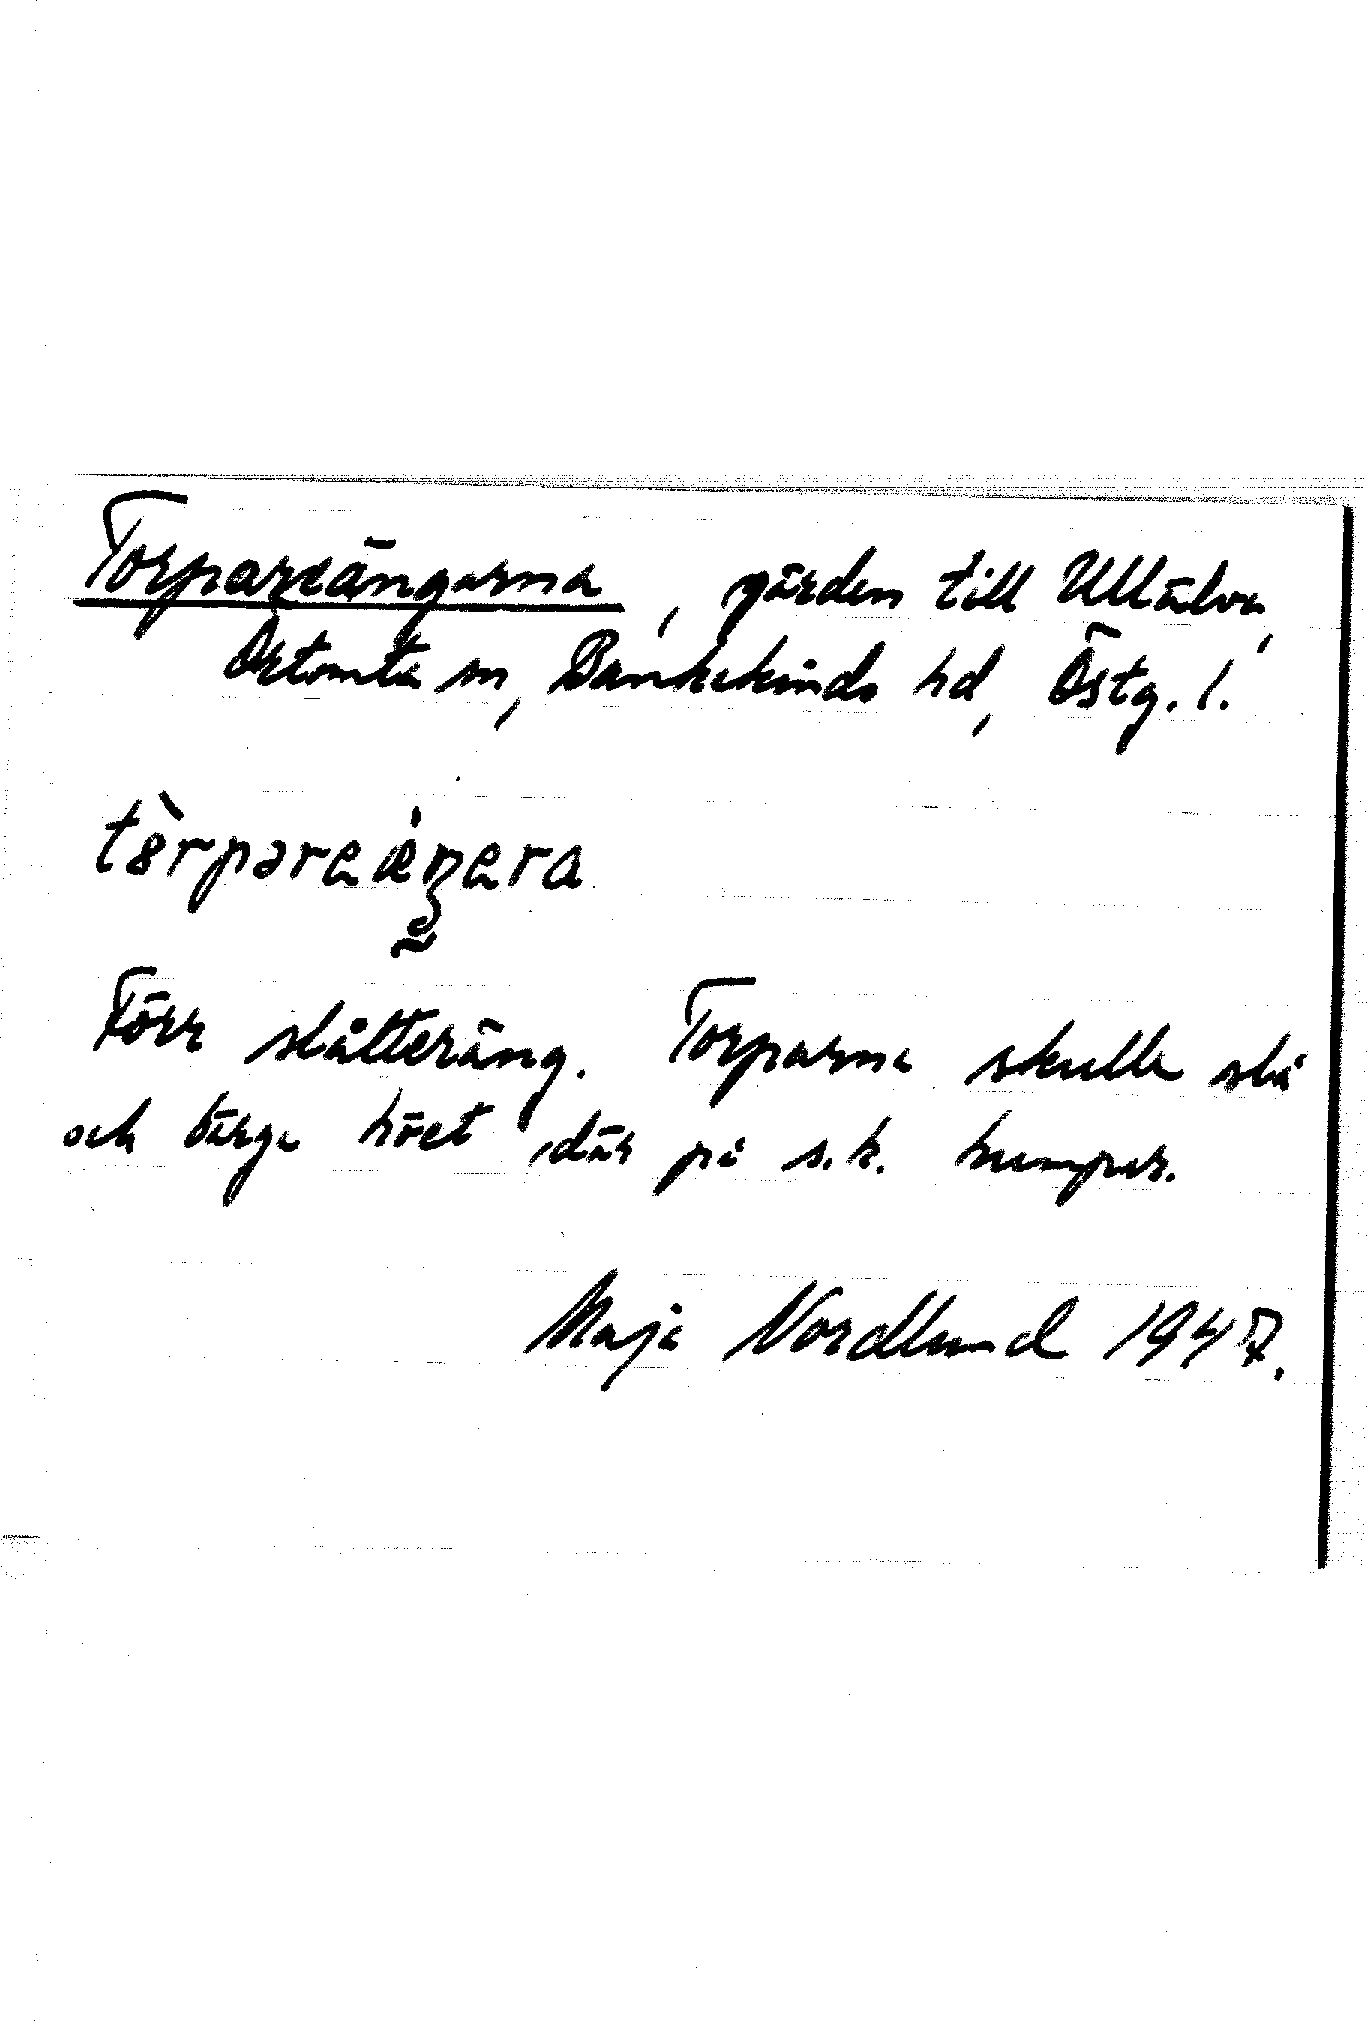 Torpareängarna, gärden till Ullälva,
Örtomta sn, Bankekinds hd, Östg. l.
tòrpareæŋera
Förr slåtteräng. Torparna skulle slå
och bärga höet där på s.k. humpar.
Maja Nordlund 1947.